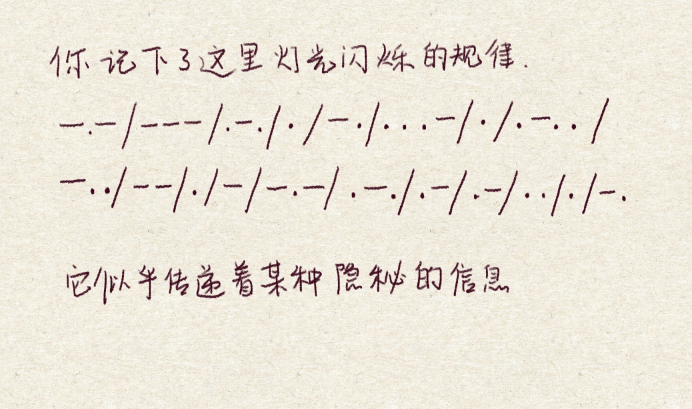 你记下了这里灯光闪烁的规律.
—.—/———/.—./·/—·/...—/·/.—../
—../——/./—/—.—/.—./.—/.—/../·/—.
它似乎传递着某种隐秘的信息